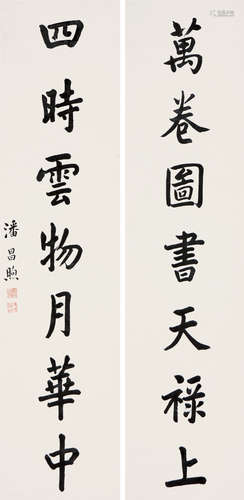 萬卷圖書天祿上
四時雲物月華中
潘昌煦